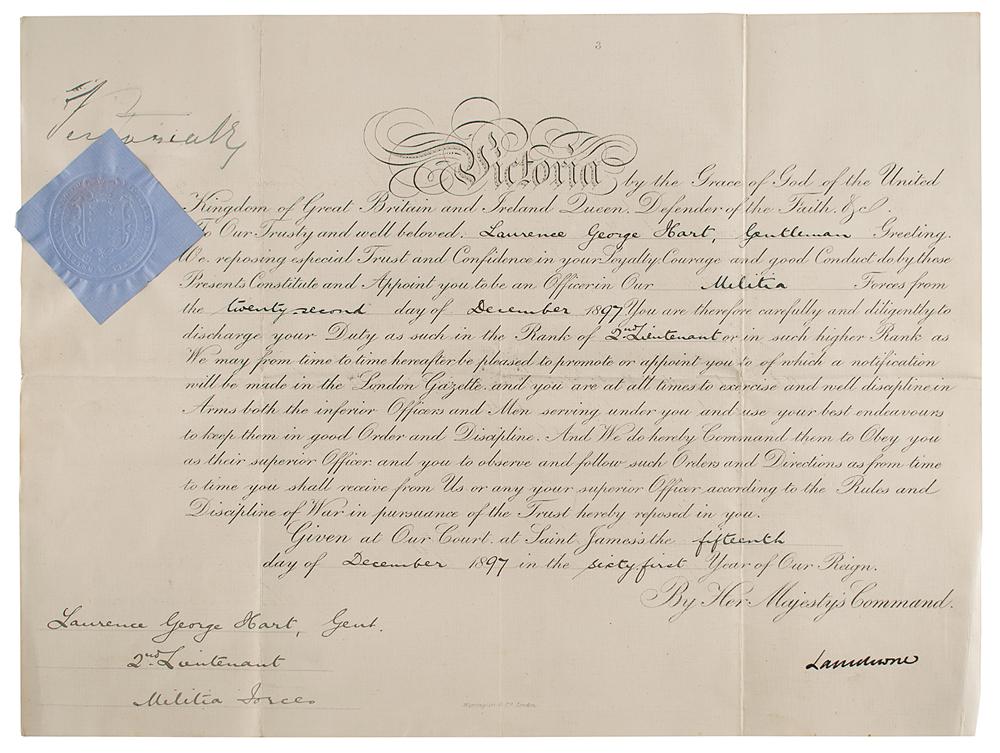 3
Victoria by the Grace of God of the United
Kingdom of Great Britain and Ireland Queen. Defender of the Faith. &c.
To Our Trusty and well beloved. Laurence George Hart, Gentleman Greeting.
We. reposing especial Trust and Confidence in your Loyalty Courage and good Conduct do by these
Presents Constitute and Appoint you to be an Officer in Our Militia Forces from
the twenty-second day of December 1897 You are therefore carefully and diligently to
discharge your Duty as such in the Rank of 2nd Lieutenant or in such higher Rank as
We may from time to time hereafter be pleased to promote or appoint you to of which a notification
will be made in the London Gazette. and you are at all times to exercise and well discipline in
Arms both the inferior Officers and Men serving under you and use your best endeavours
to keep them in good Order and Discipline. And We do hereby Command them to Obey you
as their superior Officer and you to observe and follow such Orders and Directions as from time
to time you shall receive from Us or any your superior Officer according to the Rules and
Discipline of War in pursuance of the Trust hereby reposed in you.
Given at Our Court. at Saint James's the fifteenth
day of December 1897 in the sixty first Year of Our Reign.
By Her Majesty's Command.
Laurence George Hart, Gent.
2nd Lieutenant
Militia Forces
Lansdowne
London